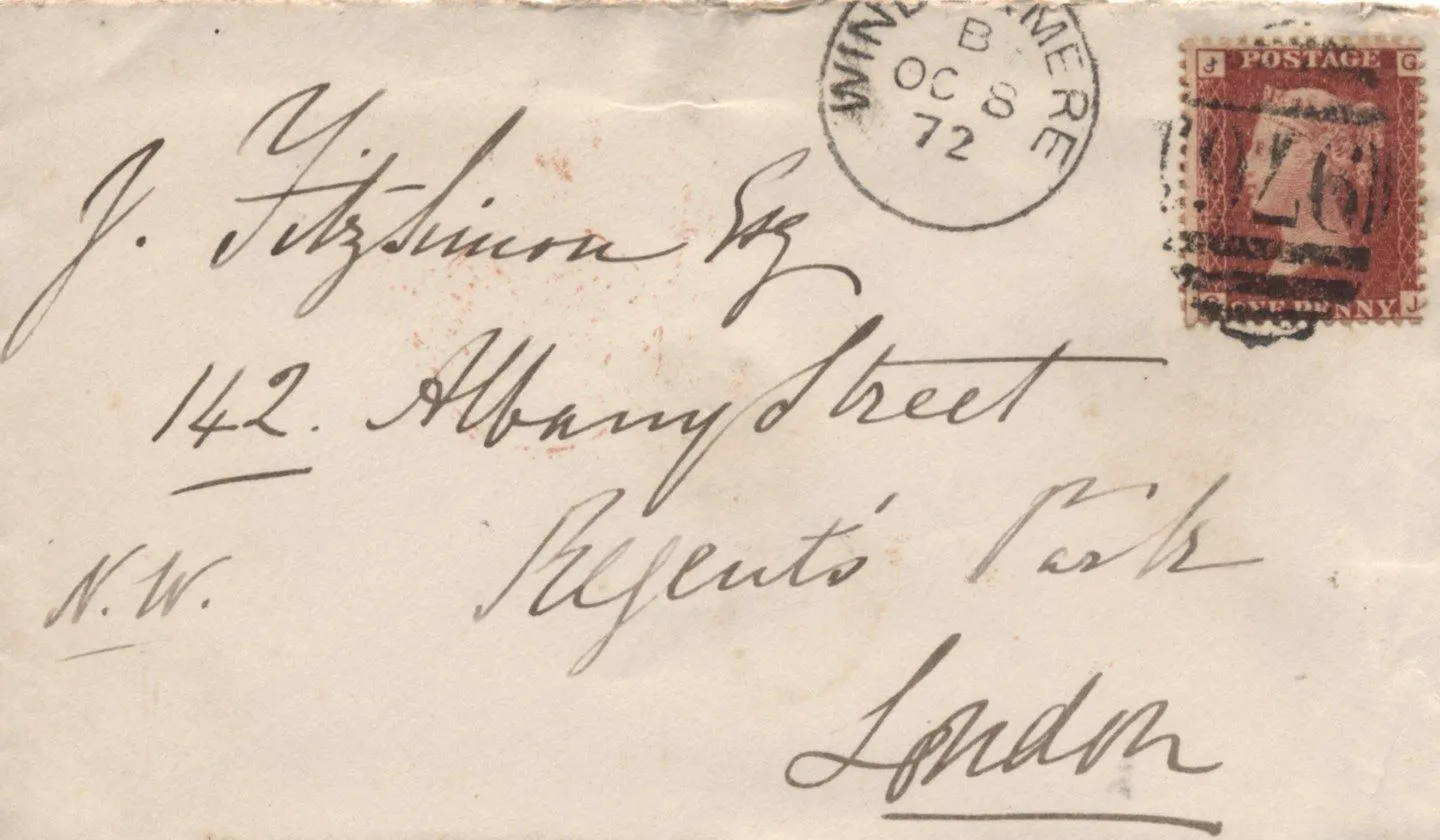 WINDERMERE
B
OC 8
72
J G
POSTAGE
ONE PENNY
G J
J. Fitzsimon Esq
142. Albany Street
Regent's Park
N.W.
London